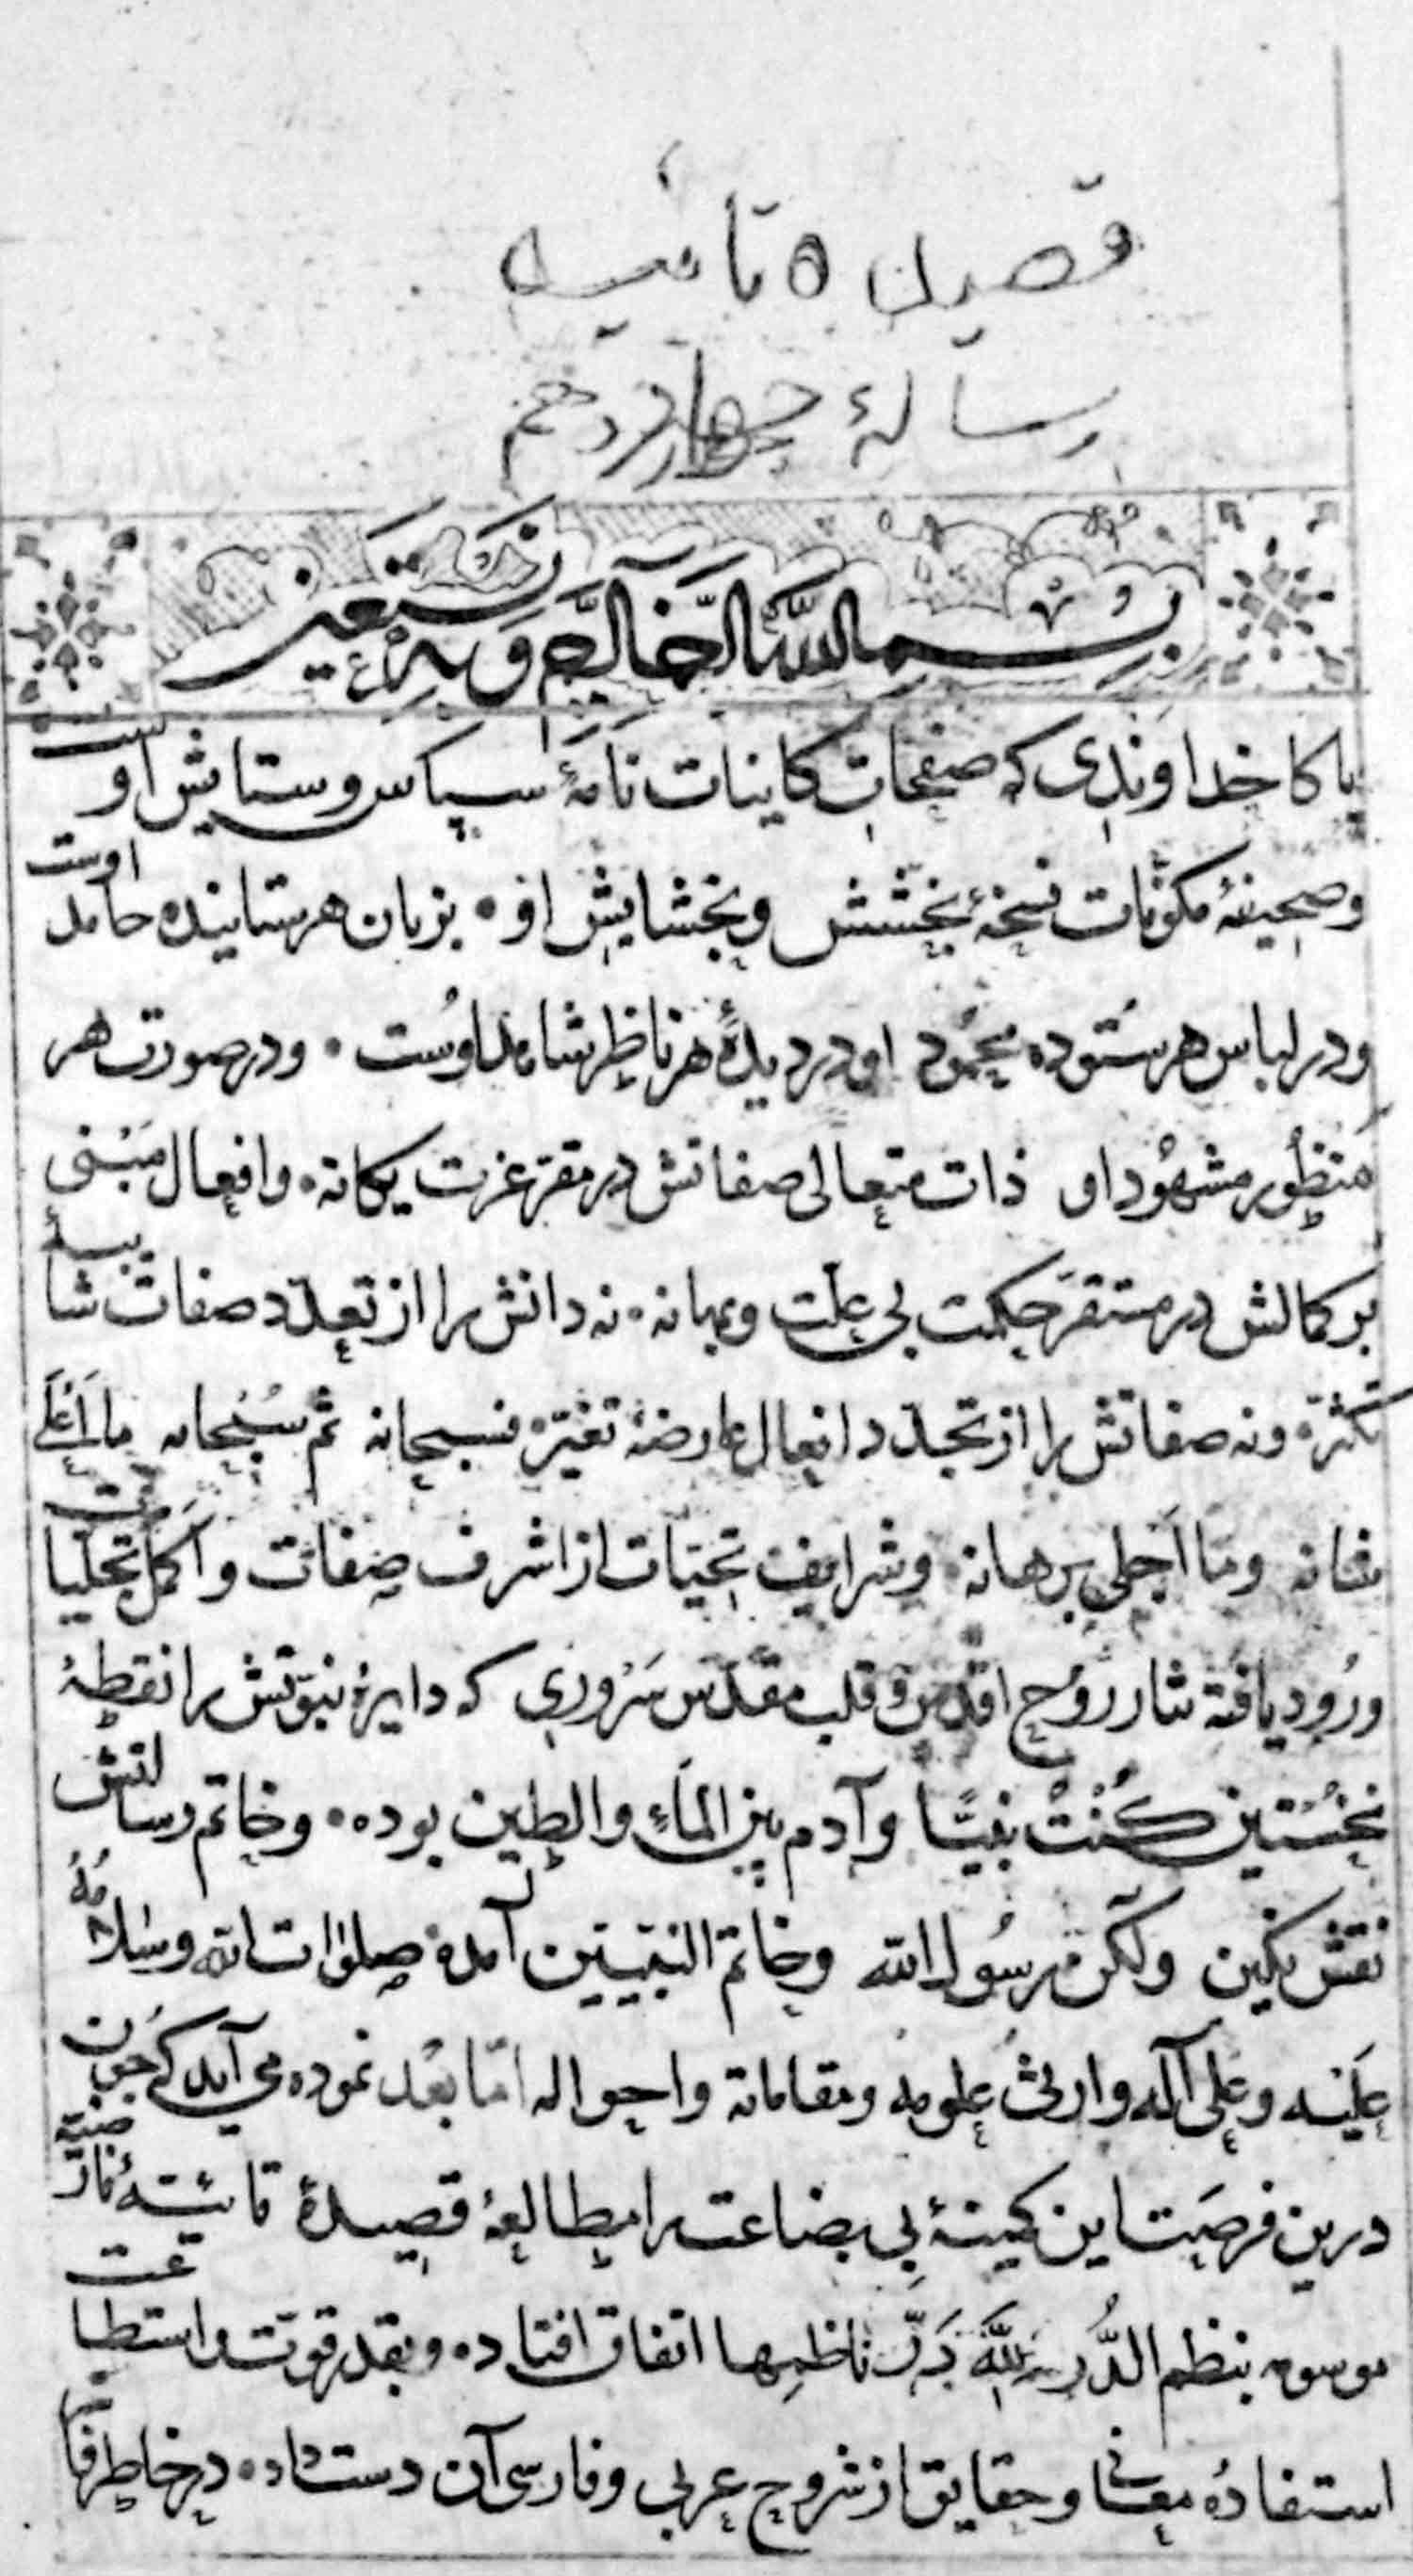 قصیده تائیه
رسالهٔ چهاردهم
بسم الله الرحمن الرحیم و به نستعین
پاکا خداوندی که صفحات کاینات نامهٔ سپاس و ستایش اوست
و صحیفهٔ مکوّنات نسخهٔ بخشش و بخشایش او • بزبان هر ستاینده حامد اوست
و در لباس هر ستوده محمود او در دیدهٔ هر ناظر شاهد اوست • و در صورت هر
منظور مشهود او ذات متعالی صفاتش در مقر عزت یکانه • و افعال مبنی
بر کمالش در مستقر حکمت بی علت و بهانه • نه ذاتش را از تعدد صفات شایبهٔ
تکثره و نه صفاتش را از تجدد افعال عارضهٔ تغیّره فسبحانه ثم سبحانه ما اعلی
شانه و ما اجلی برهانه • و شرایف تحیّات از اشرف صفات و اکمل تجلیات
ورود یافته نثار روح اقدس و قلب مقدس سروری که دایرهٔ نبوّتش را نقطهٔ
نخستین کُنْتُ نبیّاً و آدم بین الماءِ والطین بوده • و خاتم رسالتش
نقش نکین ولکن رسُول الله وخاتم النبیین آمده صلوات الله وسلامُهُ
عَلَیْه وعلی آله وارث علومه ومقاماته واحواله امّا بعد نموده می آید که چون
درین فرصت این کمینهٔ بی بضاعت را مطالعهٔ قصیدهٔ تائیّهٔ فارضیّه
موسومه بنظم الدُّر لله دَرّ ناظمها اتفاق افتاده • و بقدر قوّت و استطاعت
استفادهٔ معانی و حقایق از شروح عربی و فارسی آن دست داده • در خاطر